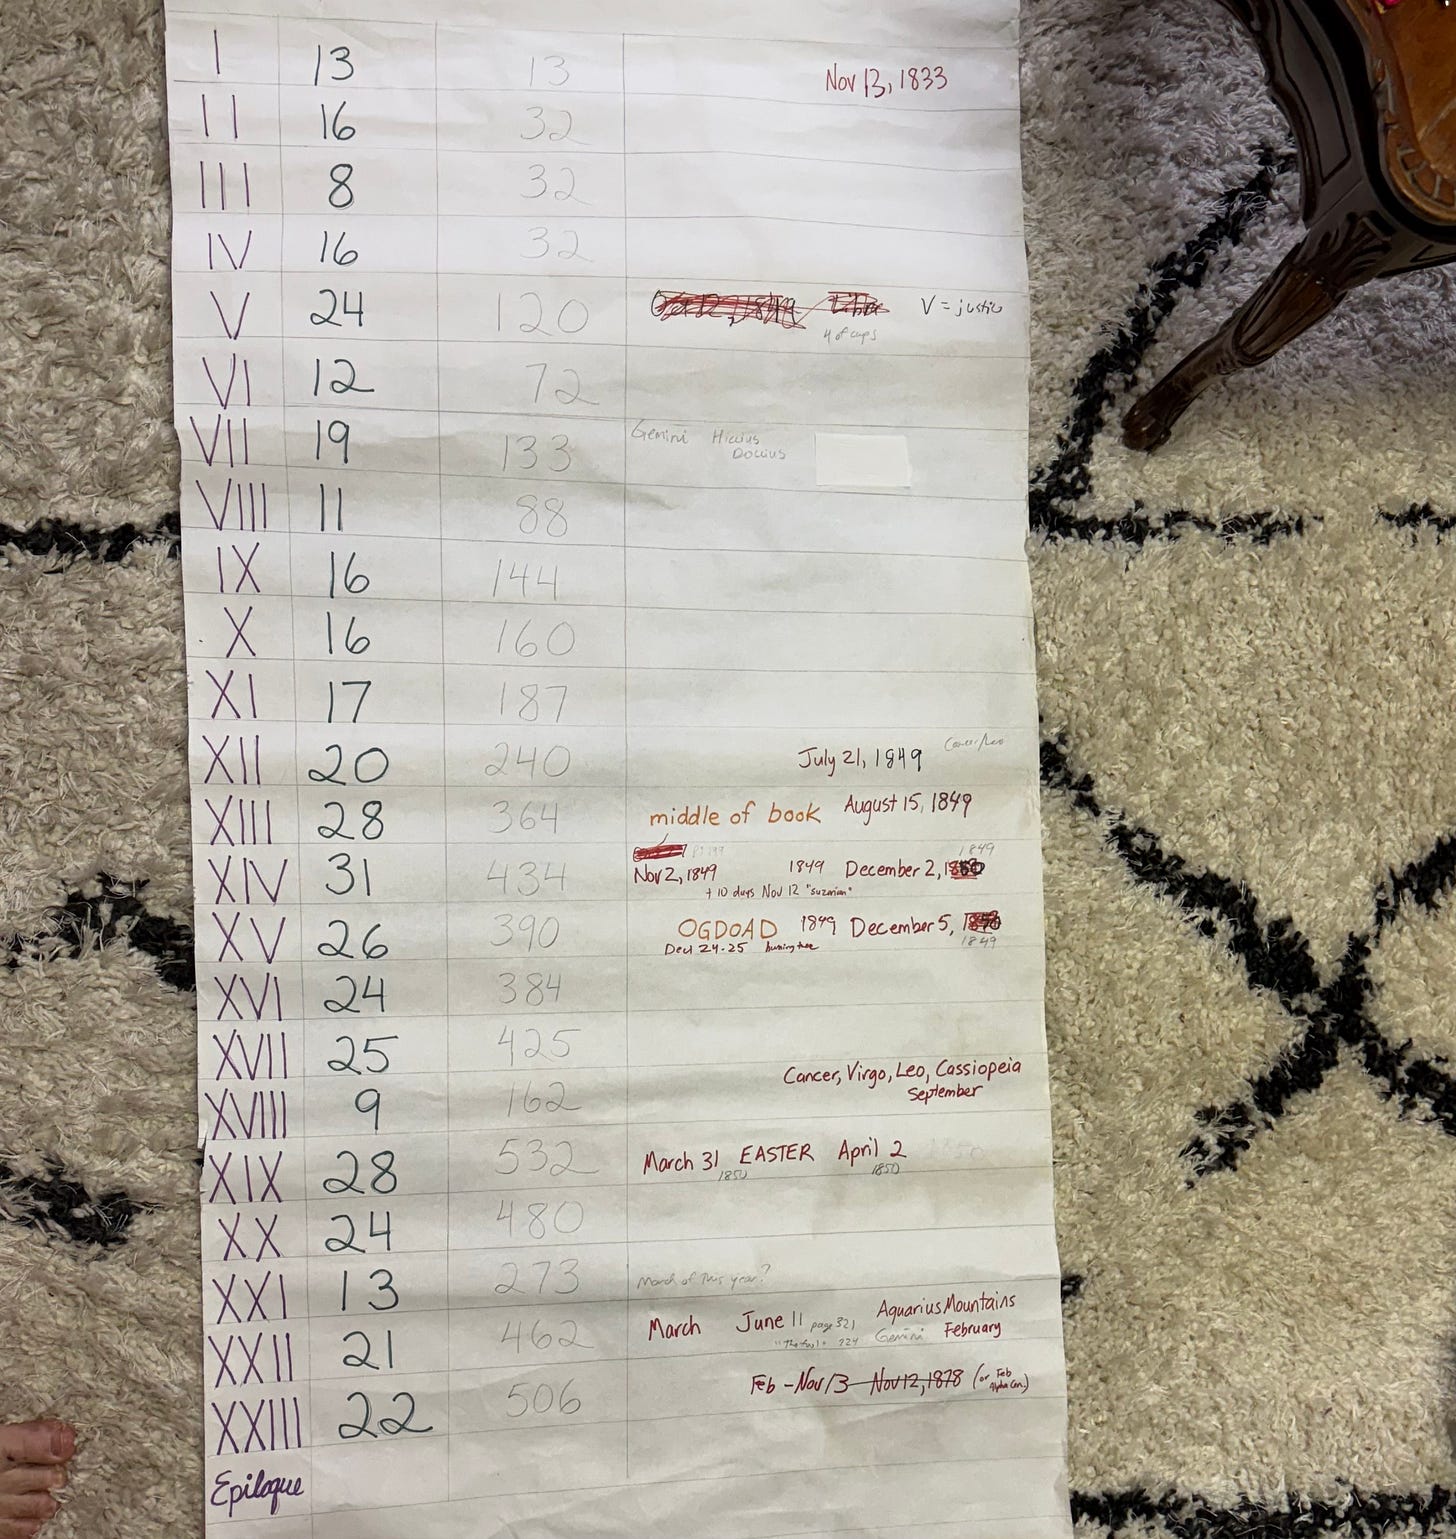 I 13 13 Nov 13, 1833
II 16 32
III 8 32
IV 16 32
V 24 120 V = justice
4 of cups
VI 12 72
VII 19 133 Gemini Hiccius
Doccius
VIII 11 88
IX 16 144
X 16 160
XI 17 187
XII 20 240 July 21, 1849 Cancer/Leo
XIII 28 364 middle of book August 15, 1849
1849
XIV 31 434 Nov 2, 1849 1849 December 2,
+ 10 days Nov 12 "suzerain"
XV 26 390 OGDOAD 1849 December 5,
Dec 24-25 burning tree 1849
XVI 24 384
XVII 25 425
Cancer, Virgo, Leo, Cassiopeia
September
XVIII 9 162
XIX 28 532 March 31 EASTER April 2
1850 1850
XX 24 480
XXI 13 273 March of this year?
XXII 21 462 March June 11 page 321 Aquarius Mountains
"The fool" 224 Gemini February
XXIII 22 506 Feb - Nov 13 Nov 12, 1878 (or Feb
Alpha Cen.)
Epilogue